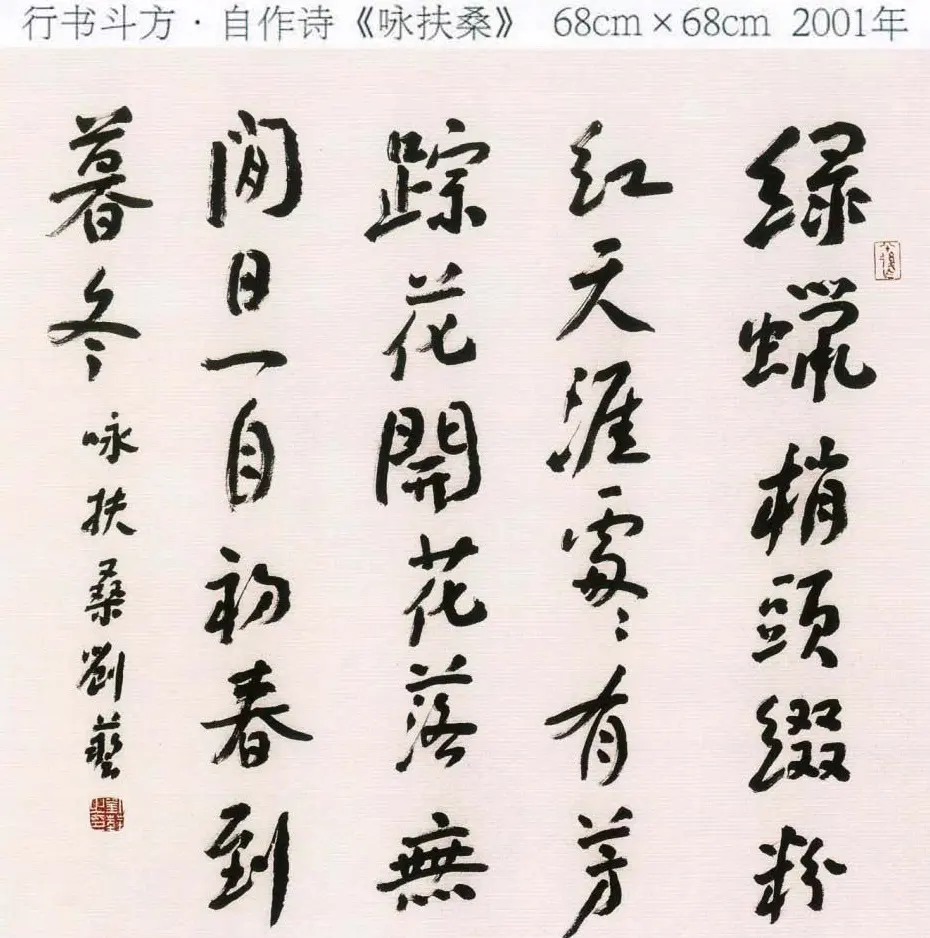 行书斗方·自作诗《咏扶桑》 68cm×68cm 2001年
绿蠟梢頭缀粉
红天涯處〻有芳
踪花開花落無
閒日一自初春到
暮冬 咏扶桑劉藝